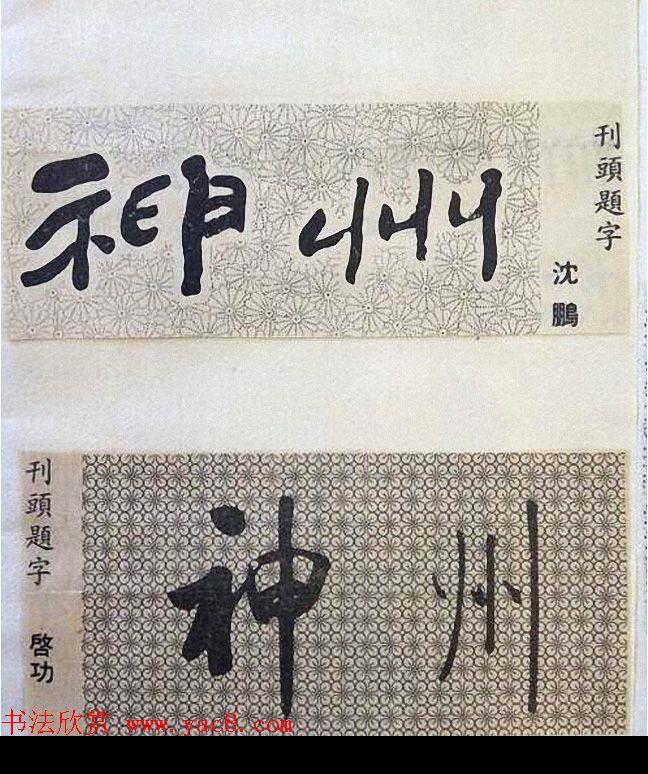 神州
刊頭題字
沈鵬
刊頭題字
啓功
神州
书法欣赏 www.yac8.com